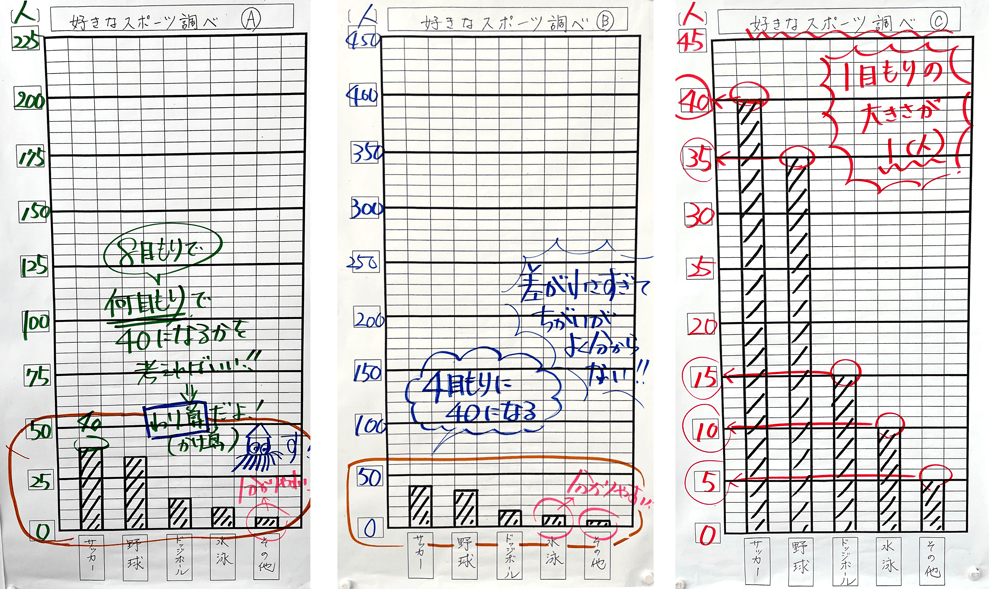 好きなスポーツ調べ Ⓐ
(人)
225
200
175
150
125
100
75
50
25
0
8目もりで
何目もりで
40になるかを
考えればいい!!
わり算だよ!
(かけ算)
す!
40
分かりやすい
サッカー
野球
ドッジボール
水泳
その他
好きなスポーツ調べ Ⓑ
(人)
450
400
350
300
250
200
150
100
50
0
差が小さすぎて
ちがいが
よく分から
ない!!
4目もりに
40になる
分かりやすい
サッカー
野球
ドッジボール
水泳
その他
好きなスポーツ調べ Ⓒ
(人)
45
40
35
30
25
20
15
10
5
0
1目もりの
大きさが
1(人)!
サッカー
野球
ドッジボール
水泳
その他